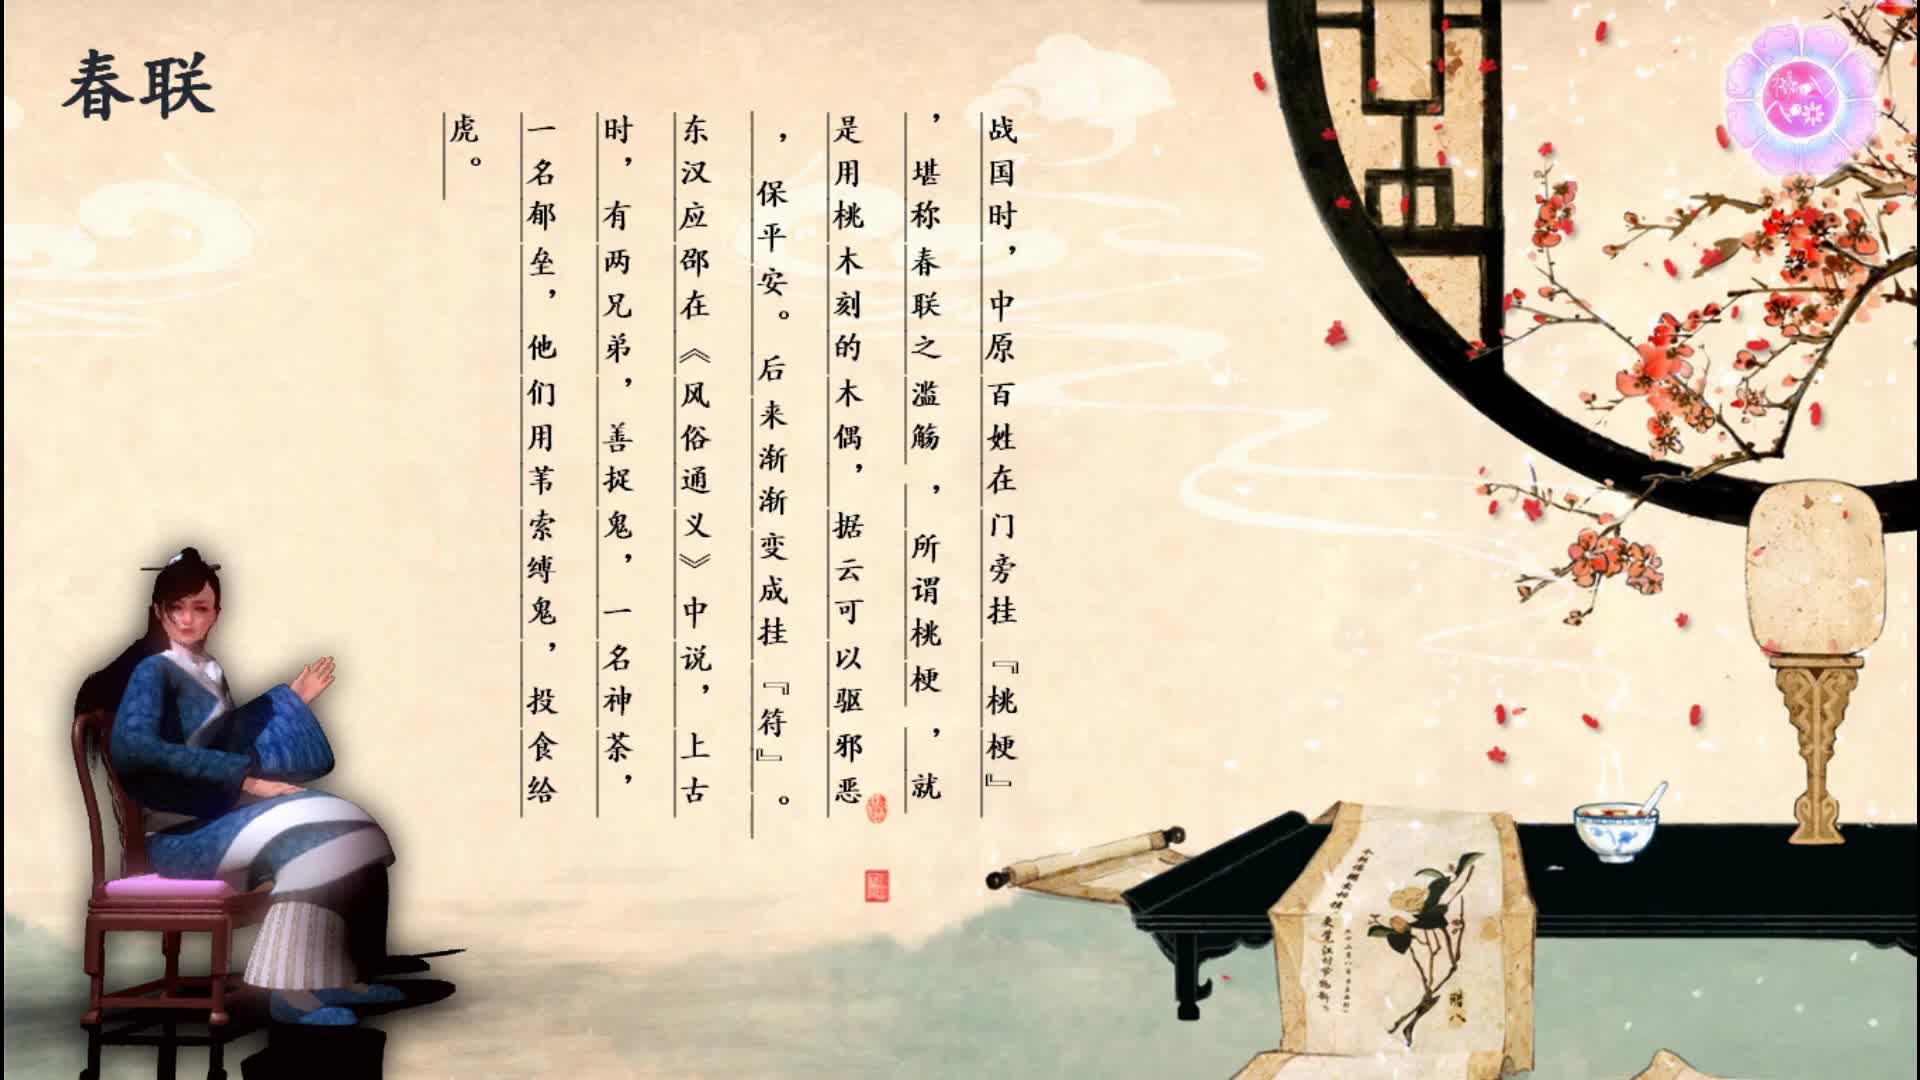 春联
战国时，中原百姓在门旁挂『桃梗』
，堪称春联之滥觞，所谓桃梗，就
是用桃木刻的木偶，据云可以驱邪恶
，保平安。后来渐渐变成挂『符』。
东汉应邵在《风俗通义》中说，上古
时，有两兄弟，善捉鬼，一名神荼，
一名郁垒，他们用苇索缚鬼，投食给
虎。
腊八